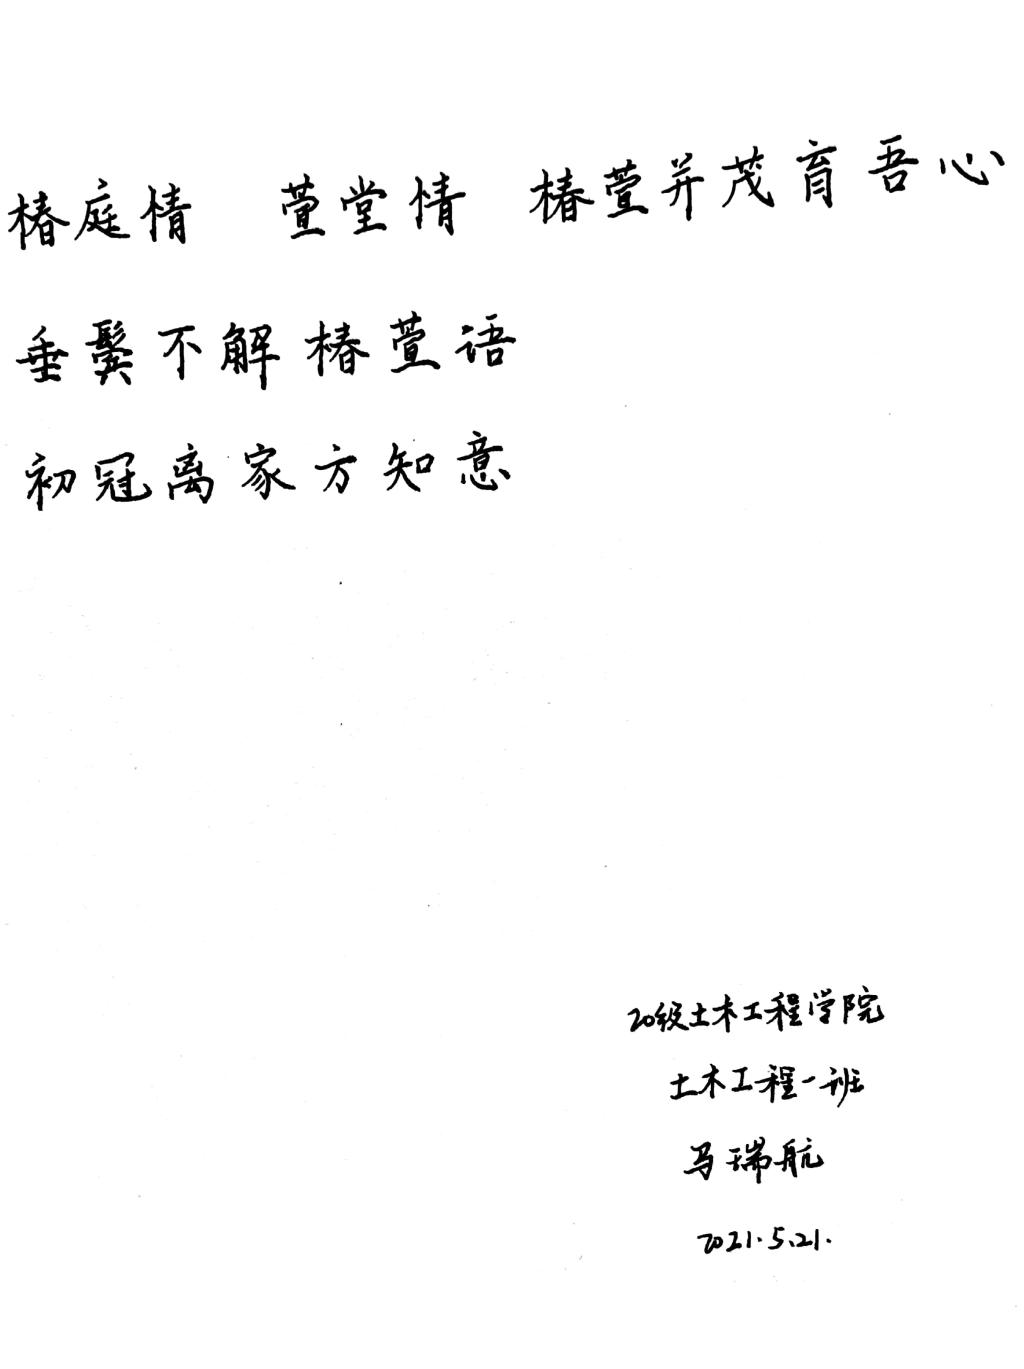 椿庭情 萱堂情 椿萱并茂育吾心
垂鬓不解椿萱语
初冠离家方知意
20级土木工程学院
土木工程一班
马瑞航
2021.5.21.